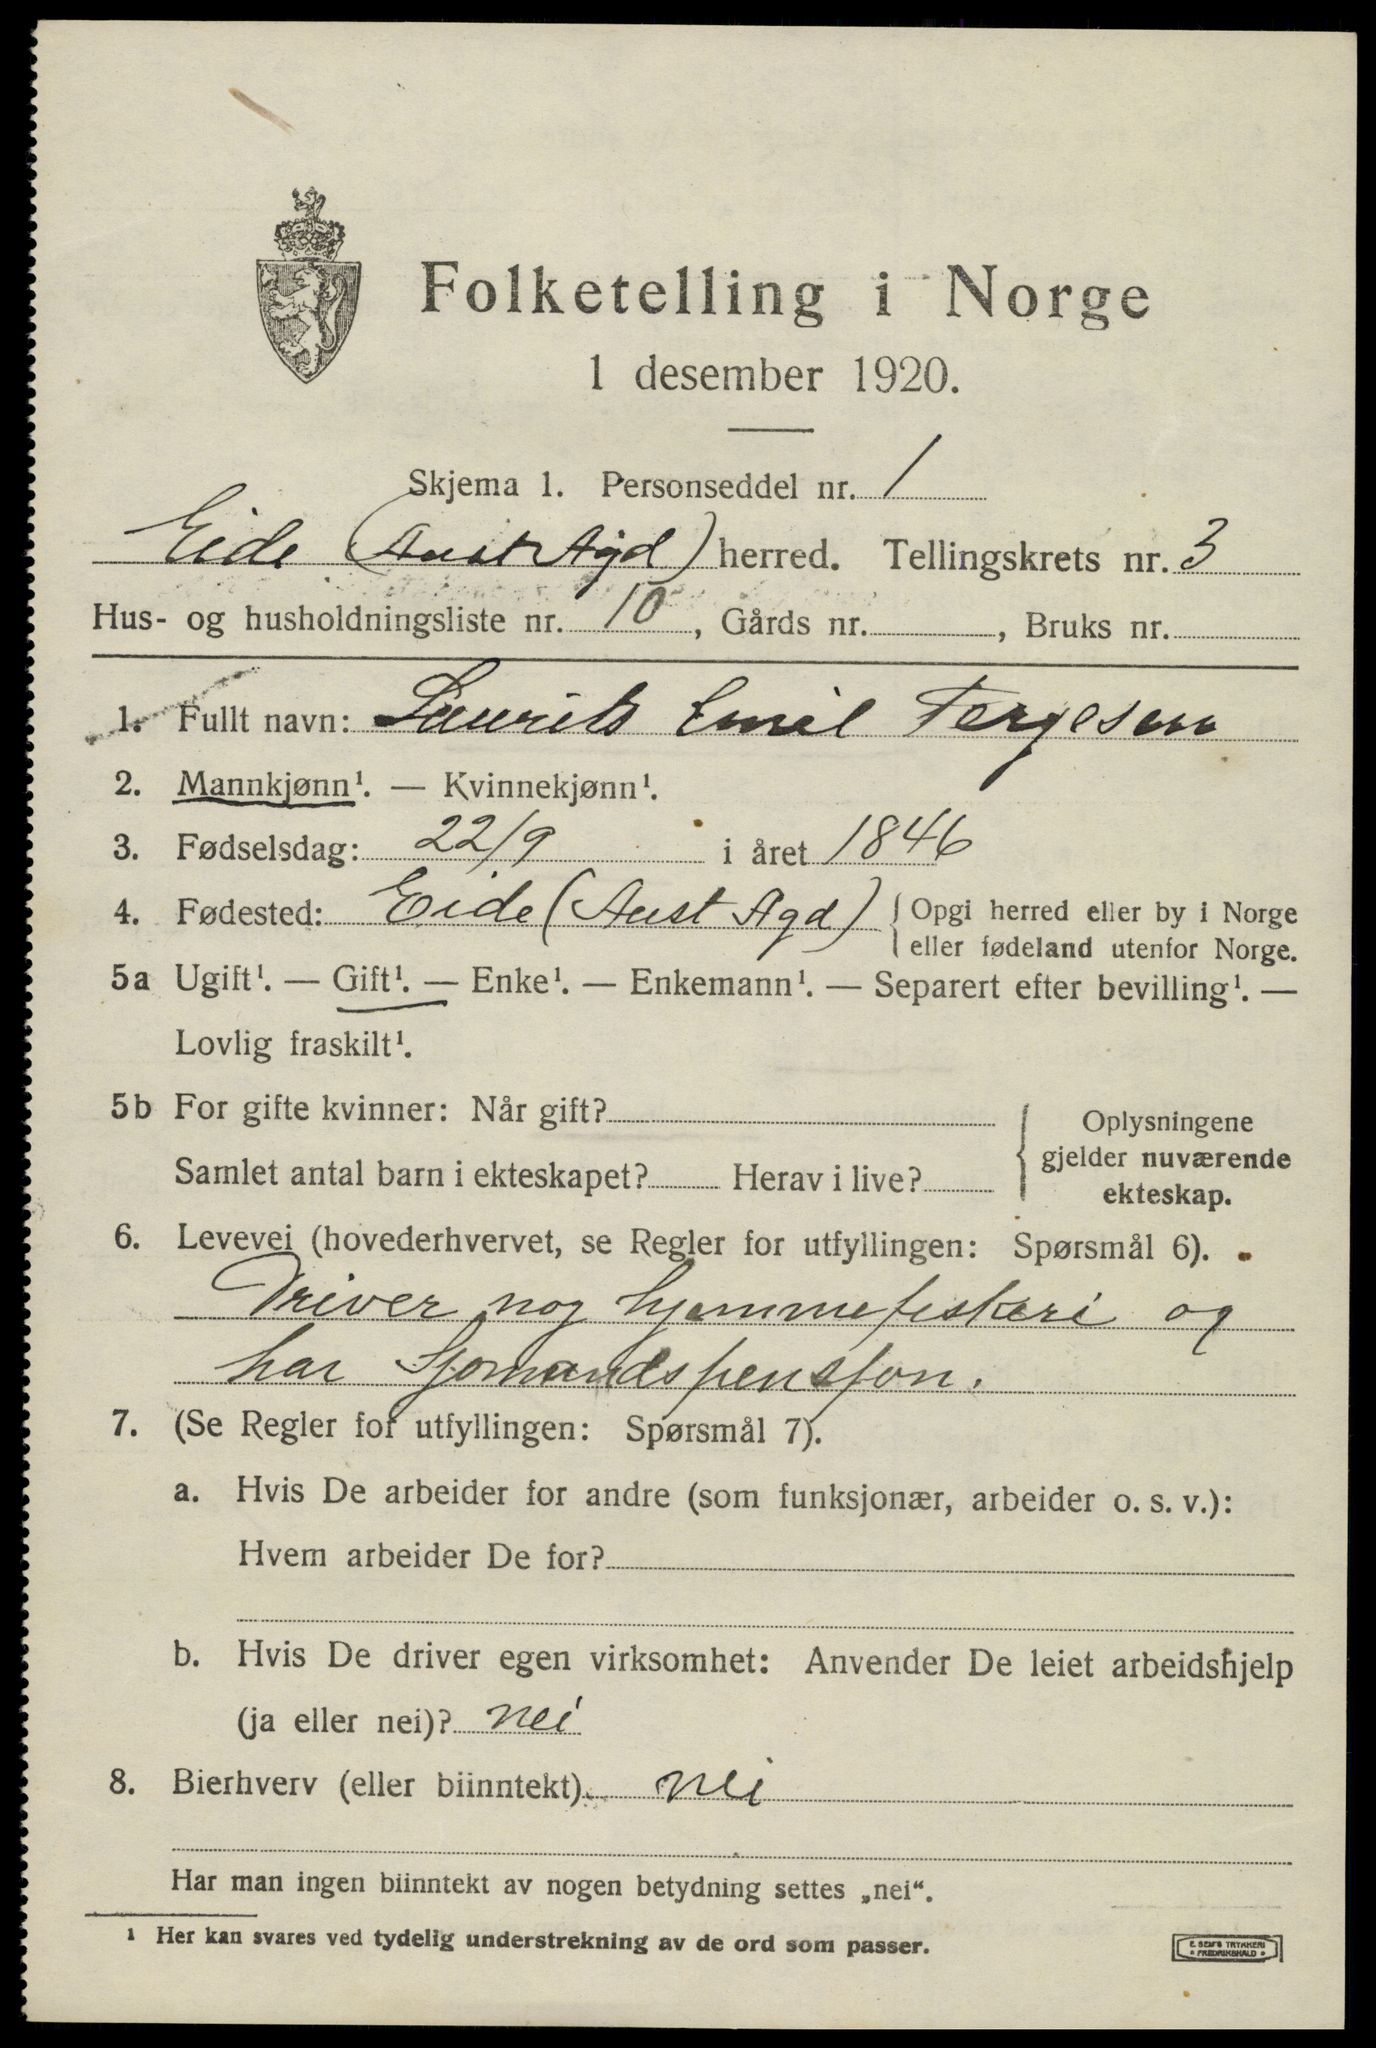 Folketelling i Norge
1 desember 1920.
Skjema 1. Personseddel nr. 1
Eide (Aust Agd) herred. Tellingskrets nr. 3
Hus- og husholdningsliste nr. 10, Gårds nr. , Bruks nr.
1. Fullt navn: Laurits Emil Tergesen
2. Mannkjønn¹. — Kvinnekjønn¹.
3. Fødselsdag: 22/9 i året 1846
4. Fødested: Eide (Aust Agd) { Opgi herred eller by i Norge
eller fødeland utenfor Norge.
5a Ugift¹. — Gift¹. — Enke¹. — Enkemann¹. — Separert efter bevilling¹. —
Lovlig fraskilt¹.
5b For gifte kvinner: Når gift?
Samlet antal barn i ekteskapet? Herav i live?
Oplysningene
gjelder nuværende
ekteskap.
6. Levevei (hovederhvervet, se Regler for utfyllingen: Spørsmål 6).
Driver nog hjemmefiskeri og
har Sjomandspensjon.
7. (Se Regler for utfyllingen: Spørsmål 7).
a. Hvis De arbeider for andre (som funksjonær, arbeider o. s. v.):
Hvem arbeider De for?
b. Hvis De driver egen virksomhet: Anvender De leiet arbeidshjelp
(ja eller nei)? nei
8. Bierhverv (eller biinntekt) nei
Har man ingen biinntekt av nogen betydning settes „nei“.
¹ Her kan svares ved tydelig understrekning av de ord som passer.
E. SEM'S TRYKKERI
FREDRIKSHALD